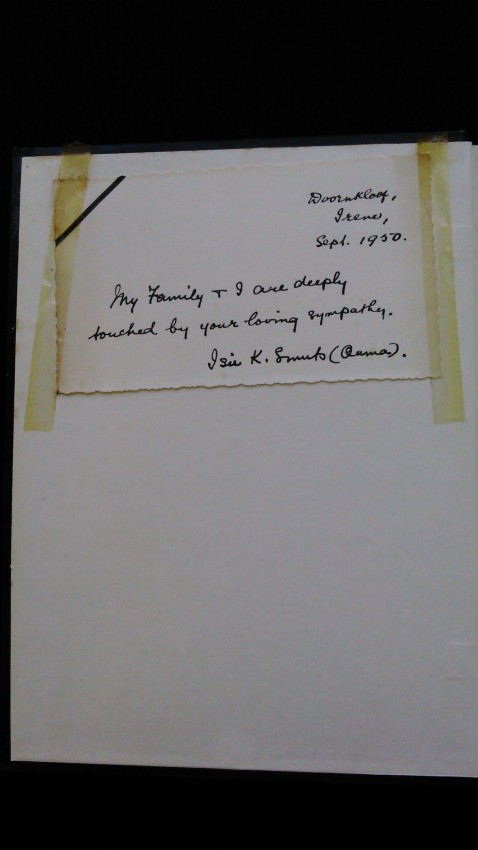 Doornkloof,
Irene,
Sept. 1950.
My Family + I are deeply
touched by your loving sympathy.
Isie K. Smuts (Ouma).